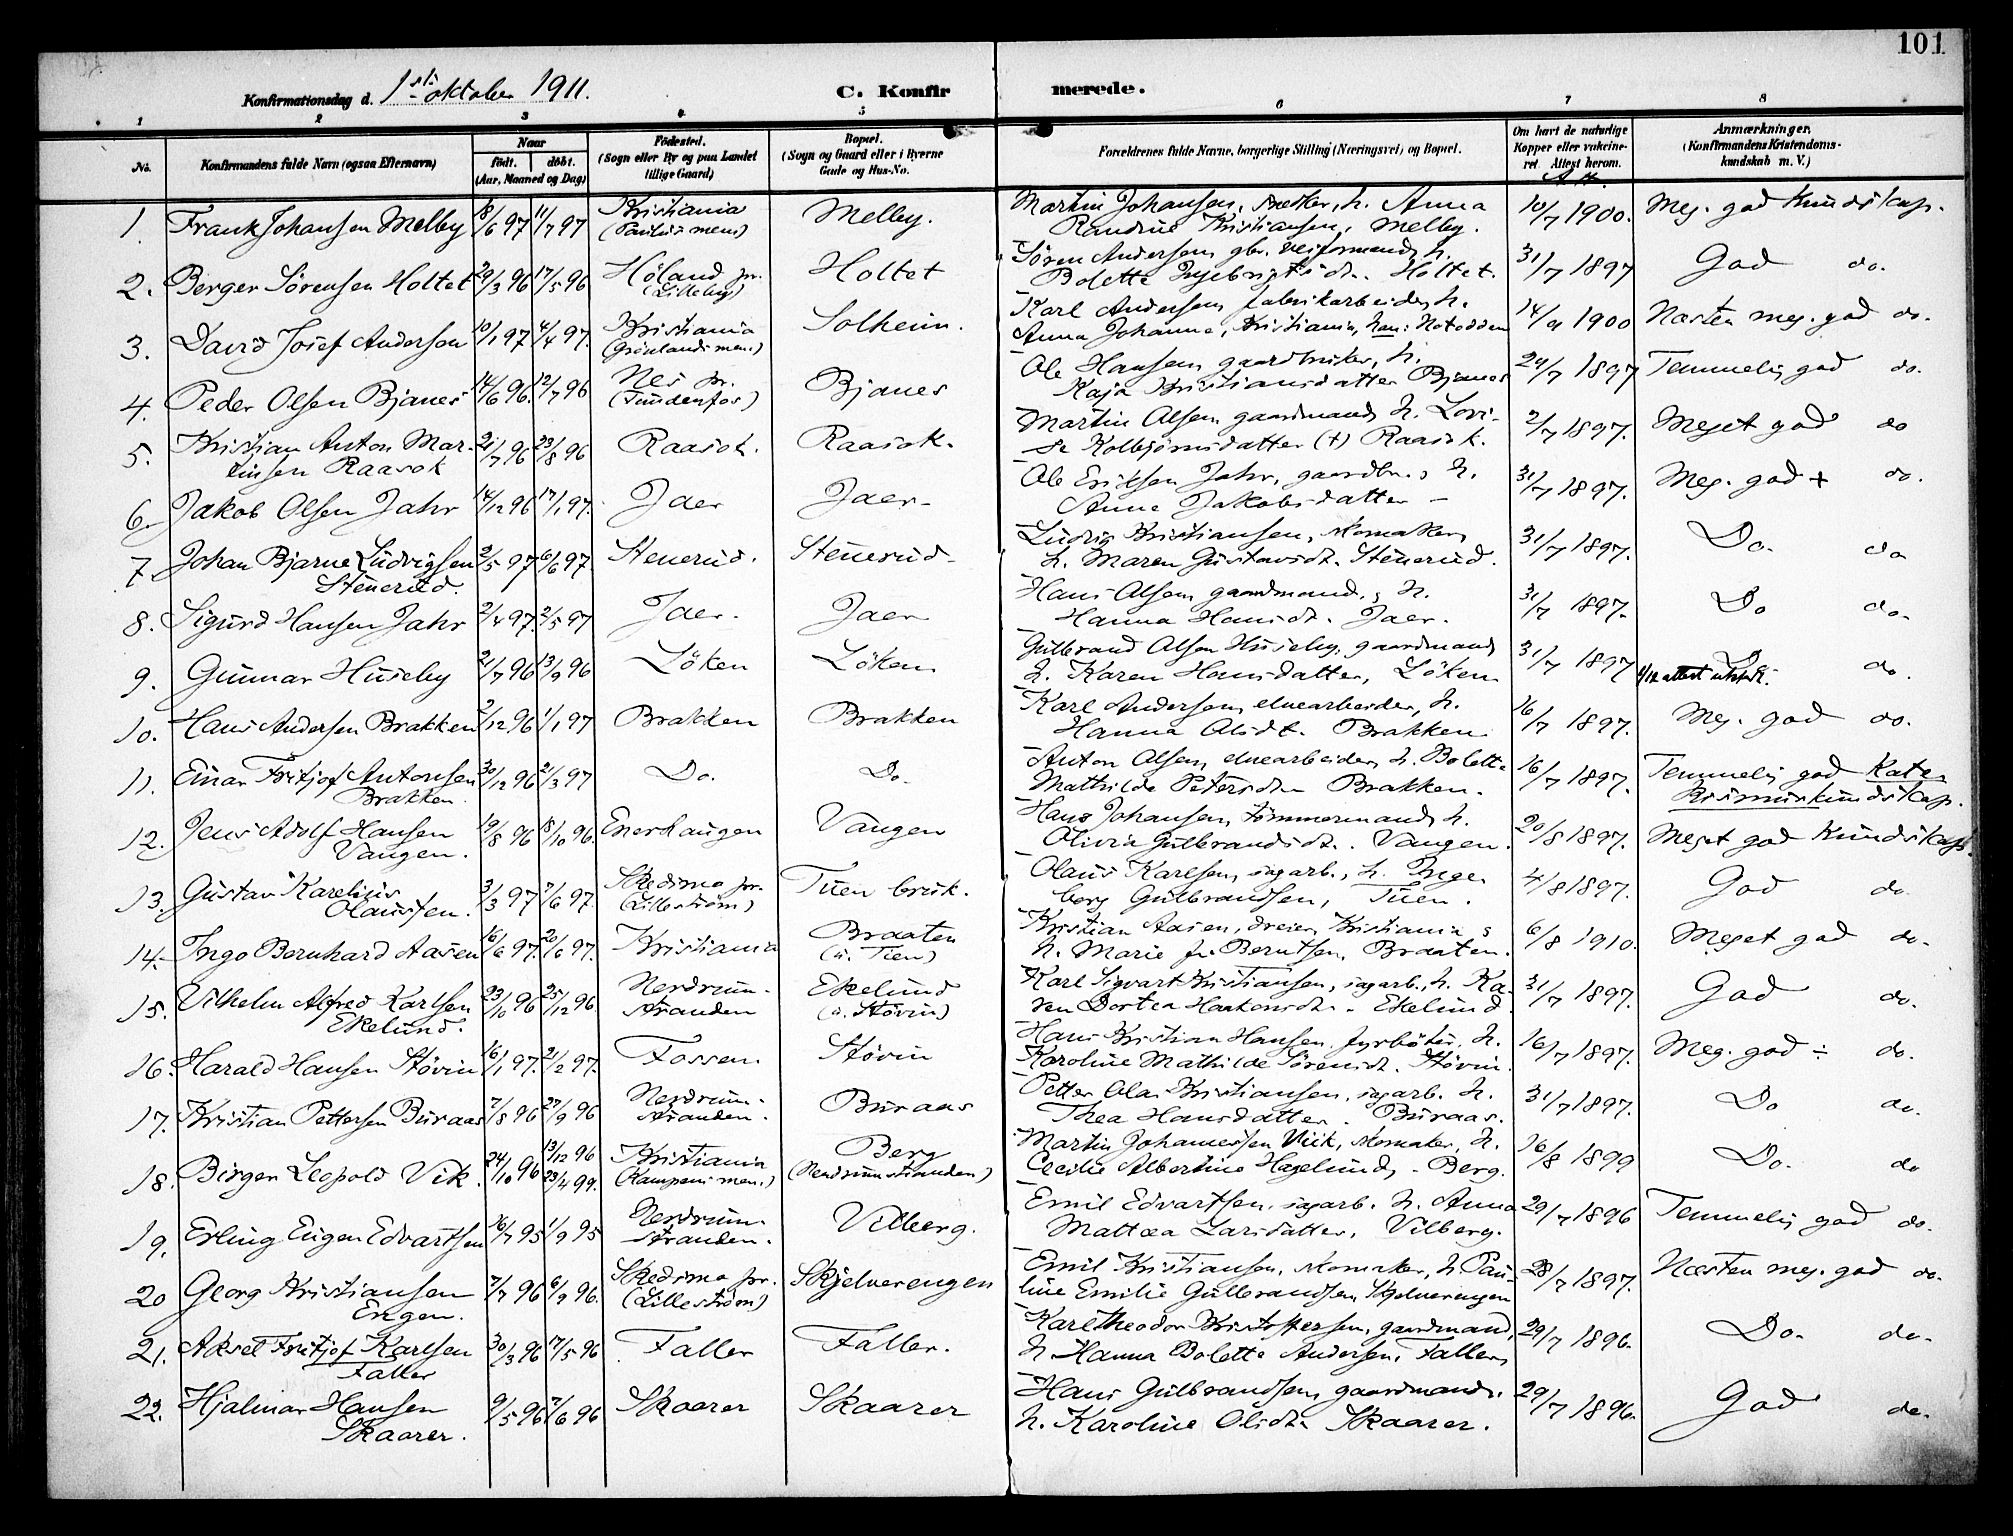 101
Konfirmationsdag d. 1ste oktober 1911.
C. Konfirmerede.
1 2 3 4 5 6 7 8
No.
Konfirmandens fulde Navn (ogsaa Efternavn)
Naar
født. døbt.
(Aar, Maaned og Dag)
Fødested.
(Sogn eller By og paa Landet
tillige Gaard)
Bopæl.
(Sogn og Gaard eller i Byerne
Gade og Hus-No.
Forældrenes fulde Navne, borgerlige Stilling (Næringsvei) og Bopæl.
Om havt de naturlige
Kopper eller vakcine-
ret Attest herom.
Anmærkninger.
(Konfirmandens Kristendoms-
kundskab m. V.)
1. Frank Johansen Melby 18/6 97 11/7 97 Kristiania (Paulus men.) Melby. Martin Johansen, h. Anna
Randine Kristiansen, Melby. 10/7 1900. Meg. god Kundskap.
2. Berger Sørensen Holtet 29/3 96 17/5 96 Høland pr. (Lilleby) Holtet Søren Andersen gbr. veiformand, h.
Bolette Ingebrigtsdt. Holtet. 31/7 1897 God do.
3. David Josef Andersen 10/1 97 4/4 97. Kristiania (Grønlands men.) Solheim. Karl Andersen, fabrikarbeider, h.
Anna Johanne, Kristiania, han: Notodden 14/9 1900 Næsten meg. god do.
4. Peder Olsen Bjanes 14/6 96. 12/7 96 Nes pr. (Fundenfos) Bjanes Ole Hansen, gaardbruker, h.
Kaja Kristiansdatter Bjanes 24/7 1897 Temmelig god do.
5. Kristian Anton Mar-
tinsen Raasok 21/7 96 23/8 96 Raasok. Raasok. Martin Olsen, gaardmand, h. Lovi-
se Kolbjørnsdatter (†) Raasok. 2/7 1897. Meget god do
6. Jakob Olsen Jahr 14/12 96 17/1 97. Jaer Jaer- Ole Eriksen Jahr, gaardbr., h.
Anne Jakobsdatter - 31/7 1897. Meg. god + do.
7. Johan Bjarne Ludvigsen
Stenerud. 2/5 97 6/6 97. Stenerud. Stenerud- Ludvig Kristiansen, skomaker,
h. Maren Gustavsdt. Stenerud. 31/7 1897. Do. do
8. Sigurd Hansen Jahr 2/4 97. 2/5 97 Jaer. Jaer Hans Olsen, gaardmand, h.
Hanna Hansdt. Jaer. 31/7 1897. Do do.
9. Gunnar Huseby 21/7 96 13/9 96 Løken Løken Gulbrand Olsen Huseby, gaardmand
h. Karen Hansdatter, Løken 31/7 1897 Do. do.
attest utst.
10. Hans Andersen Brakken 2/12 96 1/1 97 Brakken Brakken Karl Andersen, elvearbeider, h.
Hanna Olsdt. Brakken 16/7 1897. Meg. god do.
11. Einar Fritjof Antonsen
Brakken. 30/12 96 21/3 97 Do. Do. Anton Olsen, elvearbeider, h. Bolette
Mathilde Petersdtr Brakken. 16/7 1897. Temmelig god Kate-
kismuskundskap.
12. Jens Adolf Hansen
Vangen. 19/8 96 18/10 96. Enerhaugen Vangen Hans Johansen, tømmermand, h.
Olivia Gulbrandsdt. Vangen. 20/8 1897. Meget god Kundskap.
13. Gustav Karelius
Olaussen. 3/3 97 7/6 97. Skedsmo pr. (Lillestrøm) Tuen bruk. Olaus Karlsen, sagarb., h. Inge-
borg Gulbrandsen, Tuen. 4/8 1897. God do.
14. Ingo Bernhard Aasen 16/6 97. 20/6 97. Kristiania Braaten (u. Tien) Kristian Aasen, dreier, Kristiania;
h. Marie f. Berntsen, Braaten. 6/8 1910. Meget god do.
15. Vilhelm Alfred Karlsen
Ekelund. 23/10 96 25/12 96. Nerdrum-
stranden Ekelund (u. Støvin) Karl Sigvart Kristiansen, sagarb., h. Ka-
ren Dortea Haakonsdt. Ekelund. 31/7 1897. God do.
16. Harald Hansen Støvin 16/1 97. 21/2 97. Fossen. Støvin Hans Kristian Hansen, fyrbøter, h.
Karoline Mathilde Sørensdt. Støvin. 16/7 1897. Meg. god ÷ do.
17. Kristian Pettersen Buraas 7/8 96 27/9 96 Nerdrum-
stranden. Buraas Petter Olaf Kristiansen, sagarb. h.
Thea Hansdatter. Buraas. 31/7 1897. Do do.
18. Birger Leopold Vik 24/10 96 13/12 96 23/4 99. Kristiania (Kampens men.) Berg (Nerdrumstranden) Martin Johannessen Viik, skomaker, h.
Cecilie Albertine Hagelund, - Berg. 16/8 1899 Do. do
19. Erling Eugen Edvartsen 26/7 95 1/9 95 Nerdrum-
stranden. Vilberg. Emil Edvartsen, sagarb. h. Anna
Mattea Larsdatter, Vilberg. 29/7 1896 Temmelig god do.
20 Georg Kristiansen
Engen. 7/7 96 6/9 96. Skedsmo pr. (Lillestrøm) Skjelverengen Emil Kristiansen, skomaker, h. Pau-
line Emilie Gulbrandsen, Skjelverengen 28/7 1897. Næsten meg. god do.
21. Aksel Fritjof Karlsen
Faller 30/3 96 17/5 96 Faller Faller. Karl Theodor Kristoffersen, gaardmand,
h. Hanna Bolette Andersen, Faller 29/7 1896. Do. do.
22. Hjalmar Hansen
Skaarer. 9/5 96 7/6 96 Skaarer Skaarer Hans Gulbrandsen, gaardmand.
h. Karoline Olsdt. Skaarer. 29/7 1896. God do.